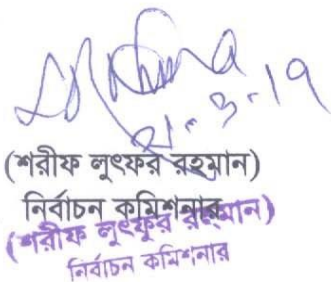 ২১-৩-১৭
(শরীফ লুৎফর রহমান)
নির্বাচন কমিশনার
(শরীফ লুৎফুর রহমান)
নির্বাচন কমিশনার